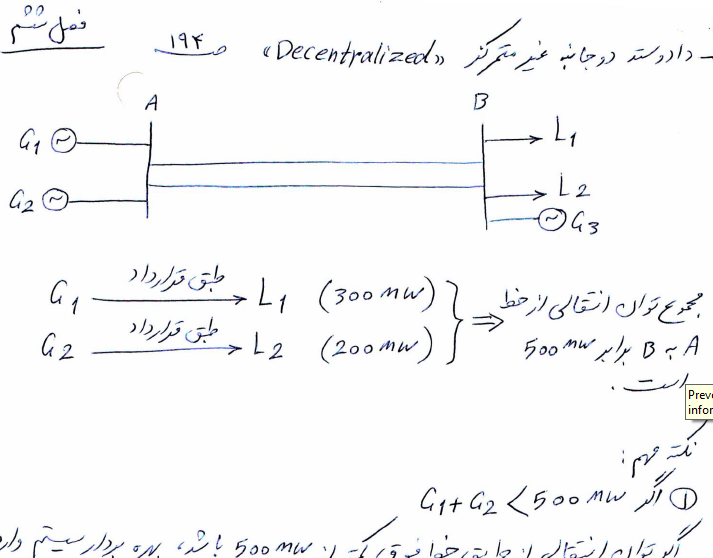 فصل ششم
- دادوستد دوجانبه غیر متمرکز «Decentralized» صـ ۱۹۴
A B
G1 L1
G2 L2
G3
G1 طبق قرارداد L1 (300 MW)
G2 طبق قرارداد L2 (200 MW)
مجموع توان انتقالی از خط
A به B برابر 500 MW
است.
Preve
infor
نکته مهم:
① اگر G1+G2 < 500 MW
اگر توان انتقالی از خط 500 MW باشد، بهره بردار سیستم وارد